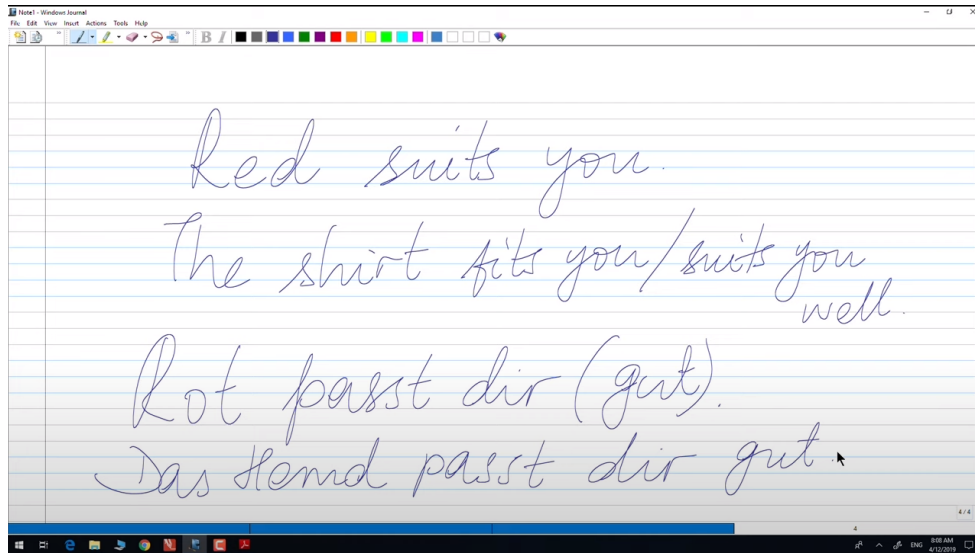 Note1 - Windows Journal
File Edit View Insert Actions Tools Help
Red suits you.
The shirt fits you/suits you
well.
Rot passt dir (gut).
Das Hemd passt dir gut.
4 / 4
4
ENG 8:08 AM
4/12/2019